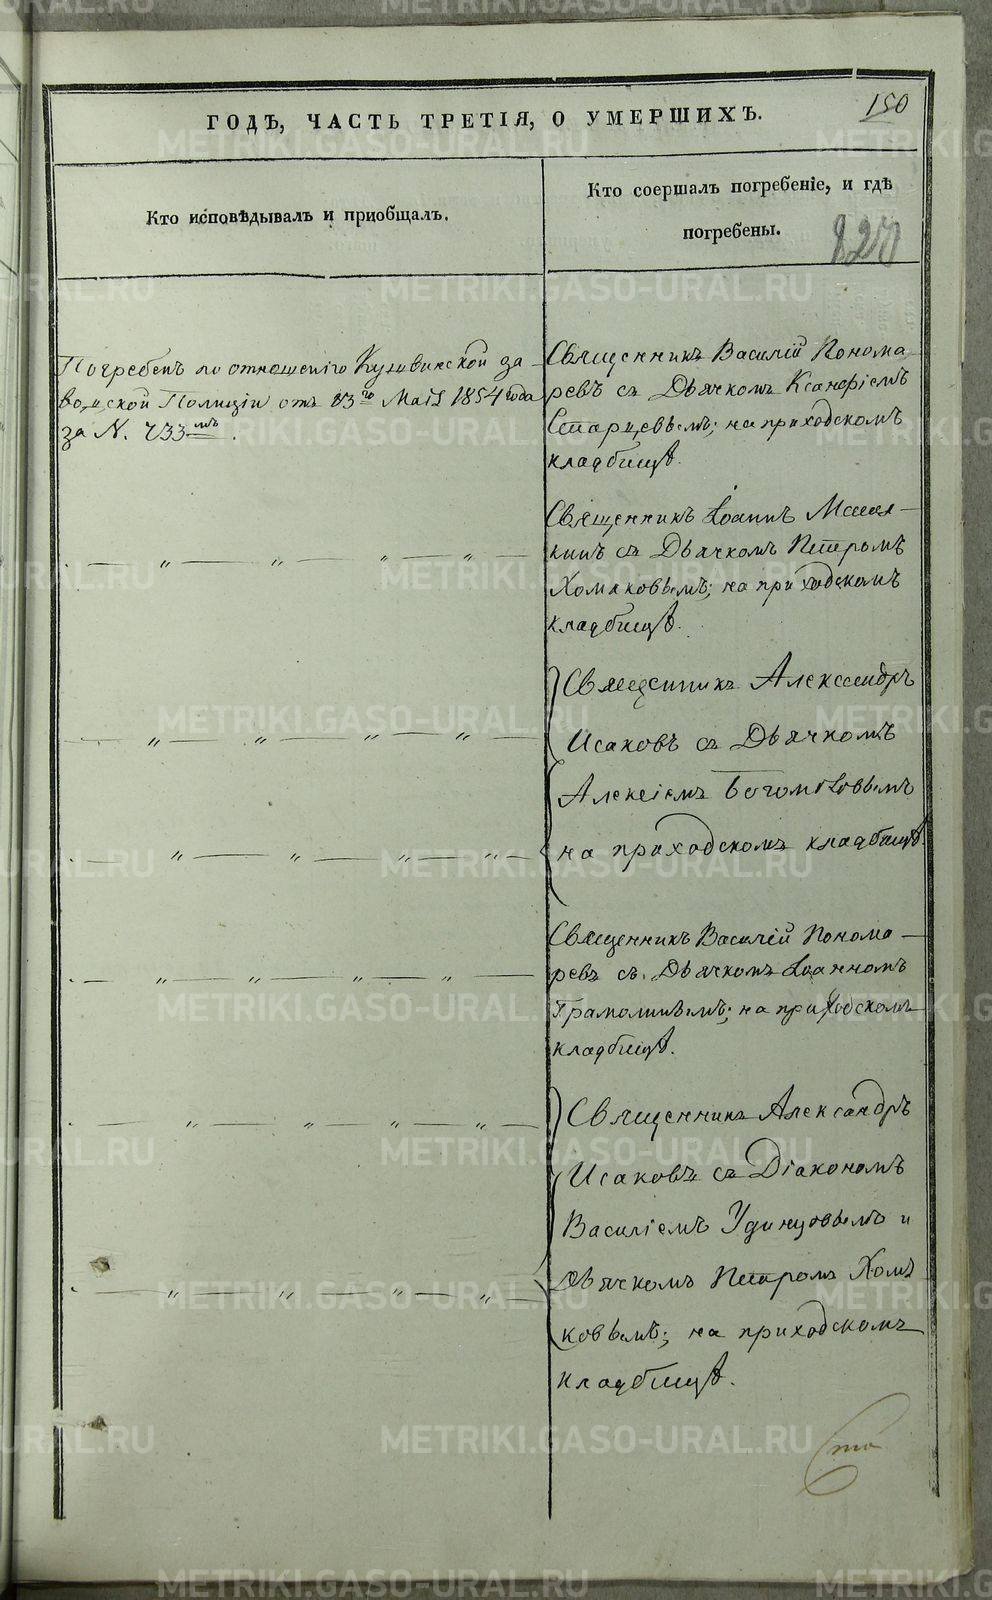 150
ГОДѢ, ЧАСТЬ ТРЕТІЯ, О УМЕРШИХЪ.
Кто исповѣдывалъ и пріобщалъ.
Кто соершалъ погребеніе, и гдѣ
погребены.
820
Погребенъ по отношенію Кушвинской за-
водской Полиціи отъ 13го Маія 1854 года
за N. 733мъ.
Священникъ Василій Понома
ревъ съ Дьячкомъ Ксанфіемъ
Старцевымъ; на приходскомъ
кладбищѣ.
Священникъ Іоаннъ
кинъ съ Дьячкомъ Петромъ
Хомяковымъ; на приходскомъ
кладбищѣ.
Священникъ Александръ
Исаковъ съ Дьячкомъ
Алексіемъ Богомоловымъ
на приходскомъ кладбищѣ.
Священникъ Василій Понома-
ревъ съ Дьячкомъ Іоанномъ
на приходскомъ
кладбищѣ.
Священникъ Александръ
Исаковъ съ Діакономъ
Василіемъ Удинцовымъ и
Дьячкомъ Петромъ Хомя
ковымъ; на приходскомъ
кладбищѣ.
Сто
METRIKI.GASO-URAL.RU